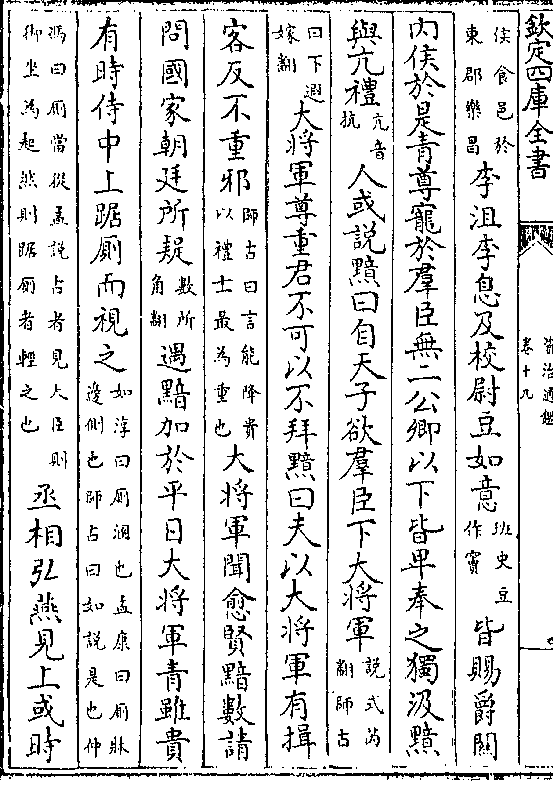 欽定四庫全書
資治通鑑
卷十九
侯食邑於東郡樂昌李沮李息及校尉豆如意班史豆作竇皆賜爵關
内侯於是青尊寵於羣臣無二公卿以下皆卑奉之獨汲黯
與亢禮亢音抗人或説黯曰自天子欲羣臣下大將軍説式芮翻師古
曰下遐嫁翻大將軍尊重君不可以不拜黯曰夫以大將軍有揖
客反不重邪師古曰言能降貴以禮士最為重也大將軍聞愈賢黯數請
問國家朝廷所疑數所角翻遇黯加於平日大將軍青雖貴
有時侍中上踞厠而視之如淳曰厠溷也孟康曰厠牀邊側也師古曰如説是也仲
馮曰厠當從孟説古者見大臣則御坐為起然則踞厠者輕之也丞相弘燕見上或時